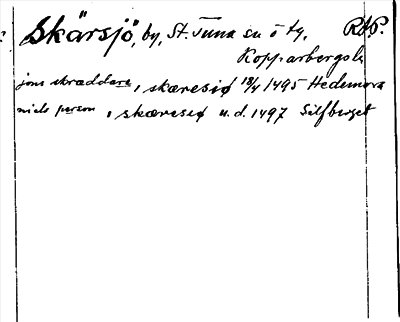 Skärsjö, by, St. Tuna sn o tg, RAP.
Kopparbergs l.
jons skræddare, i skæresiø 18/4 1495 Hedemora
niels person i skæresiø u.d. 1497 Silfberget